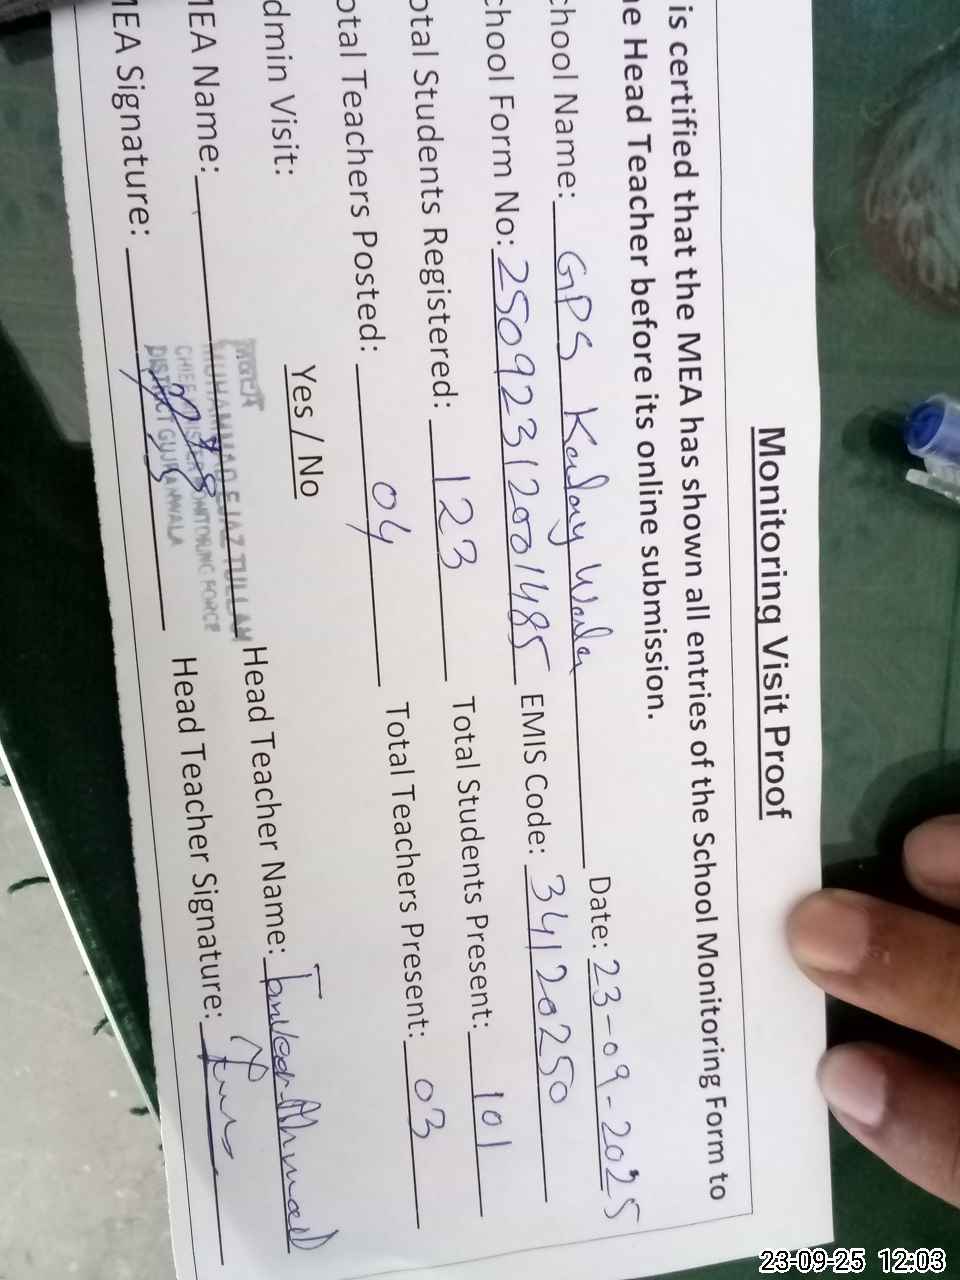 Monitoring Visit Proof
is certified that the MEA has shown all entries of the School Monitoring Form to
e Head Teacher before its online submission.
chool Name: GPS Wala Date: 23-09-2025
chool Form No: 25092312001485 EMIS Code: 34120250
otal Students Registered: 123 Total Students Present: 101
otal Teachers Posted: 04 Total Teachers Present: 03
dmin Visit: Yes / No
MEA Name: MUHAMMAD EJAZ TULLAH Head Teacher Name: Ahmad
CHIEF MINISTER MONITORING FORCE
DISTRICT GUJRANWALA
MEA Signature: Head Teacher Signature:
23-09-25 12:03